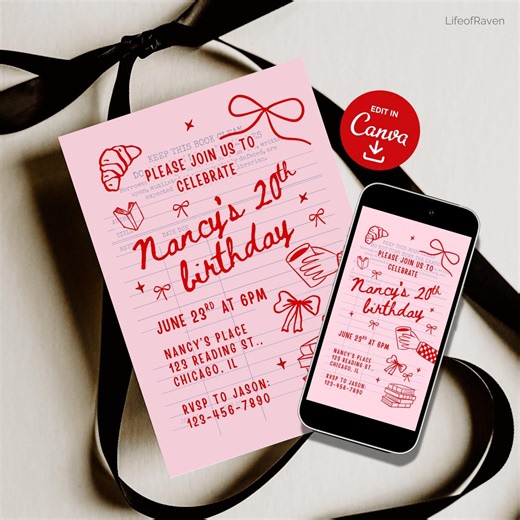 LifeofRaven
EDIT IN
Canva
KEEP THIS BOOK CLEAN
PLEASE JOIN US TO
CELEBRATE
Nancy's 20th
birthday
JUNE 23RD AT 6PM
NANCY'S PLACE
123 READING ST..
CHICAGO, IL
RVSP TO JASON:
123-456-7890
KEEP THIS BOOK CLEAN
PLEASE JOIN US TO
CELEBRATE
Nancy's 20th
birthday
JUNE 23RD AT 6PM
NANCY'S PLACE
123 READING ST..
CHICAGO, IL
RVSP TO JASON:
123-456-7890